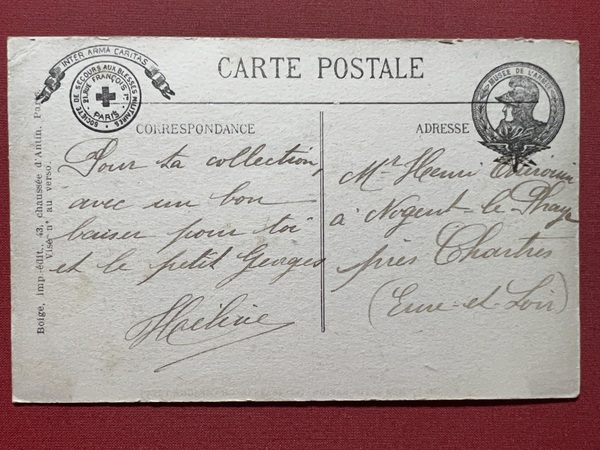 INTER ARMA CARITAS
SOCIÉTÉ DE SECOURS AUX BLESSÉS MILITAIRES
21, RUE FRANÇOIS 1er
PARIS
CARTE POSTALE
MUSÉE DE L'ARMÉE
CORRESPONDANCE
Pour ta collection,
avec un bon
baiser pour toi
et le petit Georges
ADRESSE
Mr Henri
à Nogent-le-Phaye
près Chartres
(Eure-et-Loir)
Boigé, imp.-édit., 43, chaussée d'Antin, Paris.
Visé n° au verso.